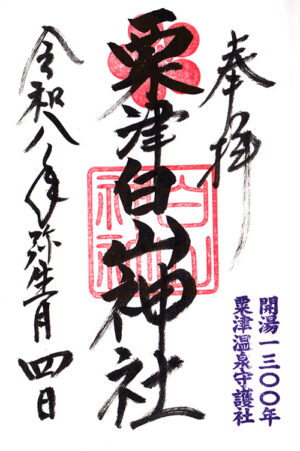 奉拝
開湯一三〇〇年
粟津温泉守護社
粟津白山神社
令和八年弥生月四日